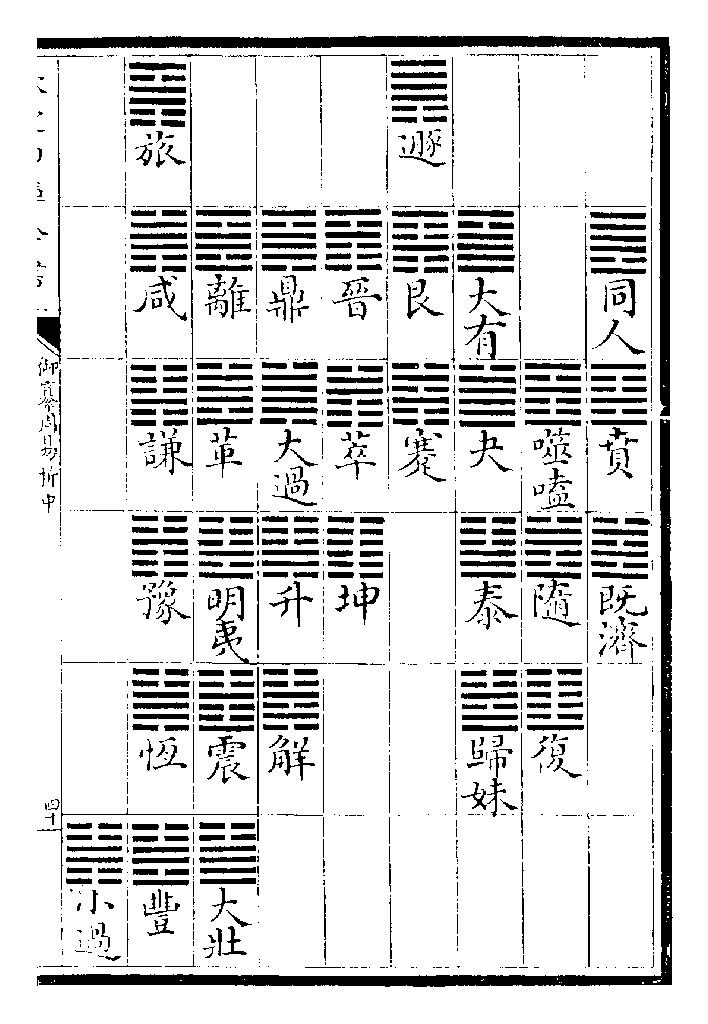 同人
賁
既濟
噬嗑
隨
復
大有
夬
泰
歸妹
遯
艮
蹇
晉
萃
坤
鼎
大過
升
解
離
革
明夷
震
大壯
旅
咸
謙
豫
恆
豐
小過
御纂周易折中
四十一